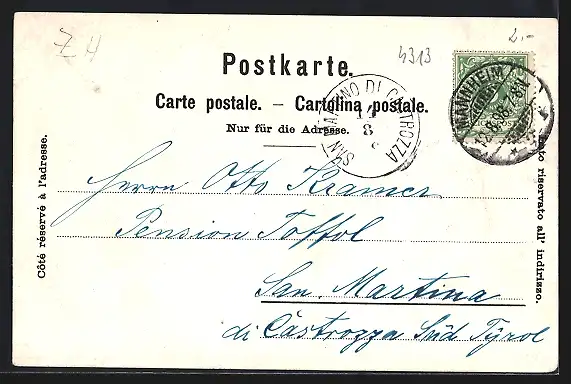 Z H
4313
2.-
Postkarte.
Carte postale. – Cartolina postale.
Nur für die Adresse.
Côté réservé à l'adresse.
riservato all' indirizzo.
MANNHEIM
SAN MARTINO DI CASTROZZA
8
Herrn Otto Kramer
Pension Toffol
San Martina
di Cástrozza Süd Tyrol